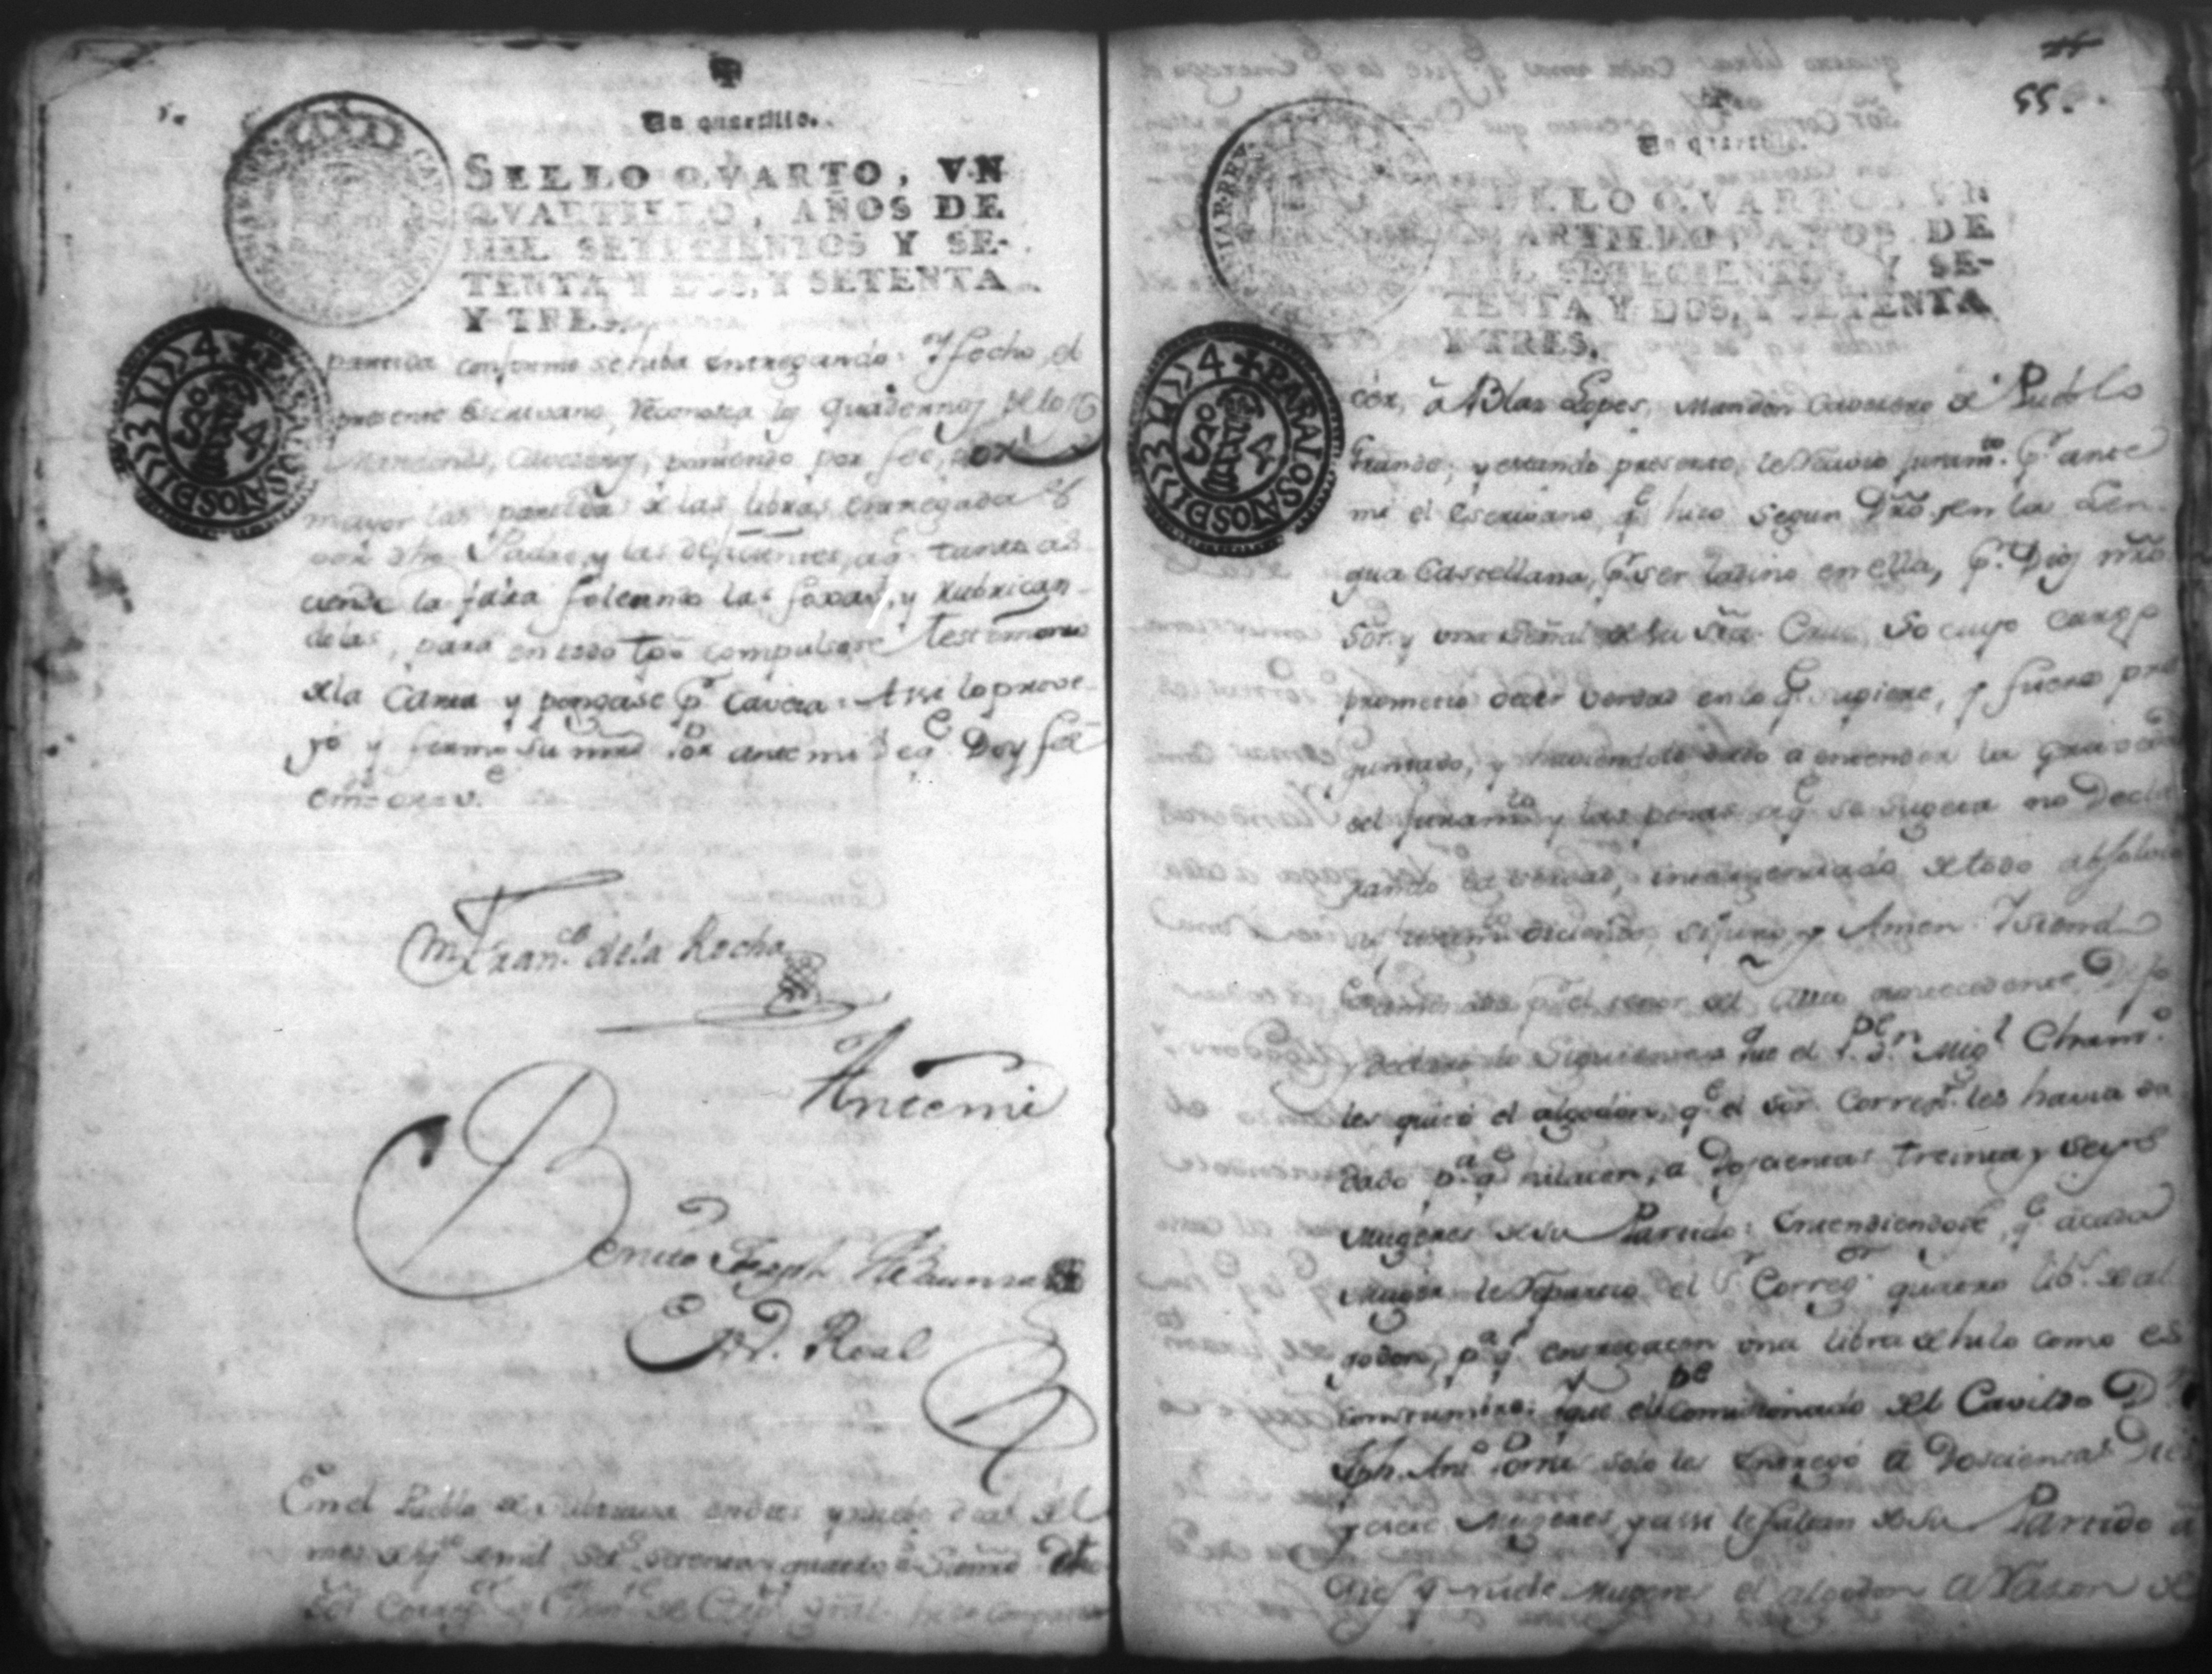 Un quartillo.
SELLO QVARTO, VN
QVARTILLO, AÑOS DE
MIL SETECIENTOS Y SE-
TENTA Y DOS, Y SETENTA
Y TRES.
PARA LOS AÑOS DE 1774
So 4
partida conforme se haba entregando: Y fecho, el
presente Escrivano, reconosca los quadernos de los
Mandones, Cavezeros, poniendo por fee, por
mayor las partidas de las libras entregadas
por dho Padre, y las deficientes, a q.e tanto as
ciende la falta foleando las foxas, y rubrican
dolas, para en todo tpo compulsar testimonio
de la Causa y pongase p.r Caveza: Assi lo prove
yó y firmo su mrd Por ante mi de q.e Doy feé
M Fran.co de la Rocha
Ante mi
Benito Joseph
Real
En el Pueblo de
mes de mil set.s setenta y quatro a.s Dho
Sor Correg.or hizo compare
55.
Un quartillo.
SELLO QVARTO, VN
QVARTILLO, AÑOS DE
MIL SETECIENTOS Y SE-
TENTA Y DOS, Y SETENTA
Y TRES.
PARA LOS AÑOS DE 1774
So 4
cer, á Blas Lopes, Mandon Cavesero de Pueblo
Grande, y estando presente, le Resivio juram.to p.r ante
mi el Escrivano, q.e hizo segun Dro. en la Len
gua Castellana, p.r ser ladino en ella, p.r Dios nro
Sor. y una señal de su Sta. Cruz, so cuyo cargo
prometio decir verdad en lo q.e supiere, y fuere pre
guntado, y haviendole dado a entender la gravedad
del juram.to y las penas, a q.e se sugeta no decla
rando la verdad, inteligenciado de todo absolvio
el juram.to diciendo, si juro, y Amen. Y siendo
p.r el tenor del Auto antecedente, Dijo
y declaro lo siguiente: que el P.e d.n Mig.l
les quitó el algodon, q.e el Sor. Correg.r les havia da
dado p.a q.e hilacen, a Doscientas treinta y seys
Mugeres de su Partido: Entendiendose, q.e a cada
Muger le Repartio el S.r Correg.or quatro lib.s de al
godon, p.a q.e entregacen una libra de hilo como es
contumbre: y que el P.e Comisionado del Cavildo D.n
Jph. Ant.o solo les Entregó a Doscientas Dies
y siete Mugeres, y assi le faltan de su Partido á
Dies y nuebe Mugeres el algodon a Razon de